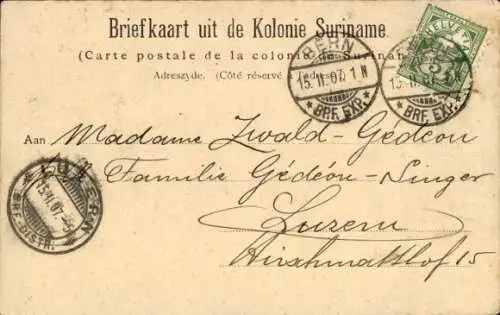 Briefkaart uit de Kolonie Suriname.
(Carte postale de la colonie de Surinam
Adreszyde. (Côté réservé
BERN
15. II. 07. 1 N
BRF. EXP.
BERN
15. II.
BRF. EXP.
HELVETIA
Aan Madame Zwald-Gedeon
Familie Gédéon-Singer
Luzern
Hirschmattstof 15
LUZERN
15. II. 07.
BRF. DISTR.